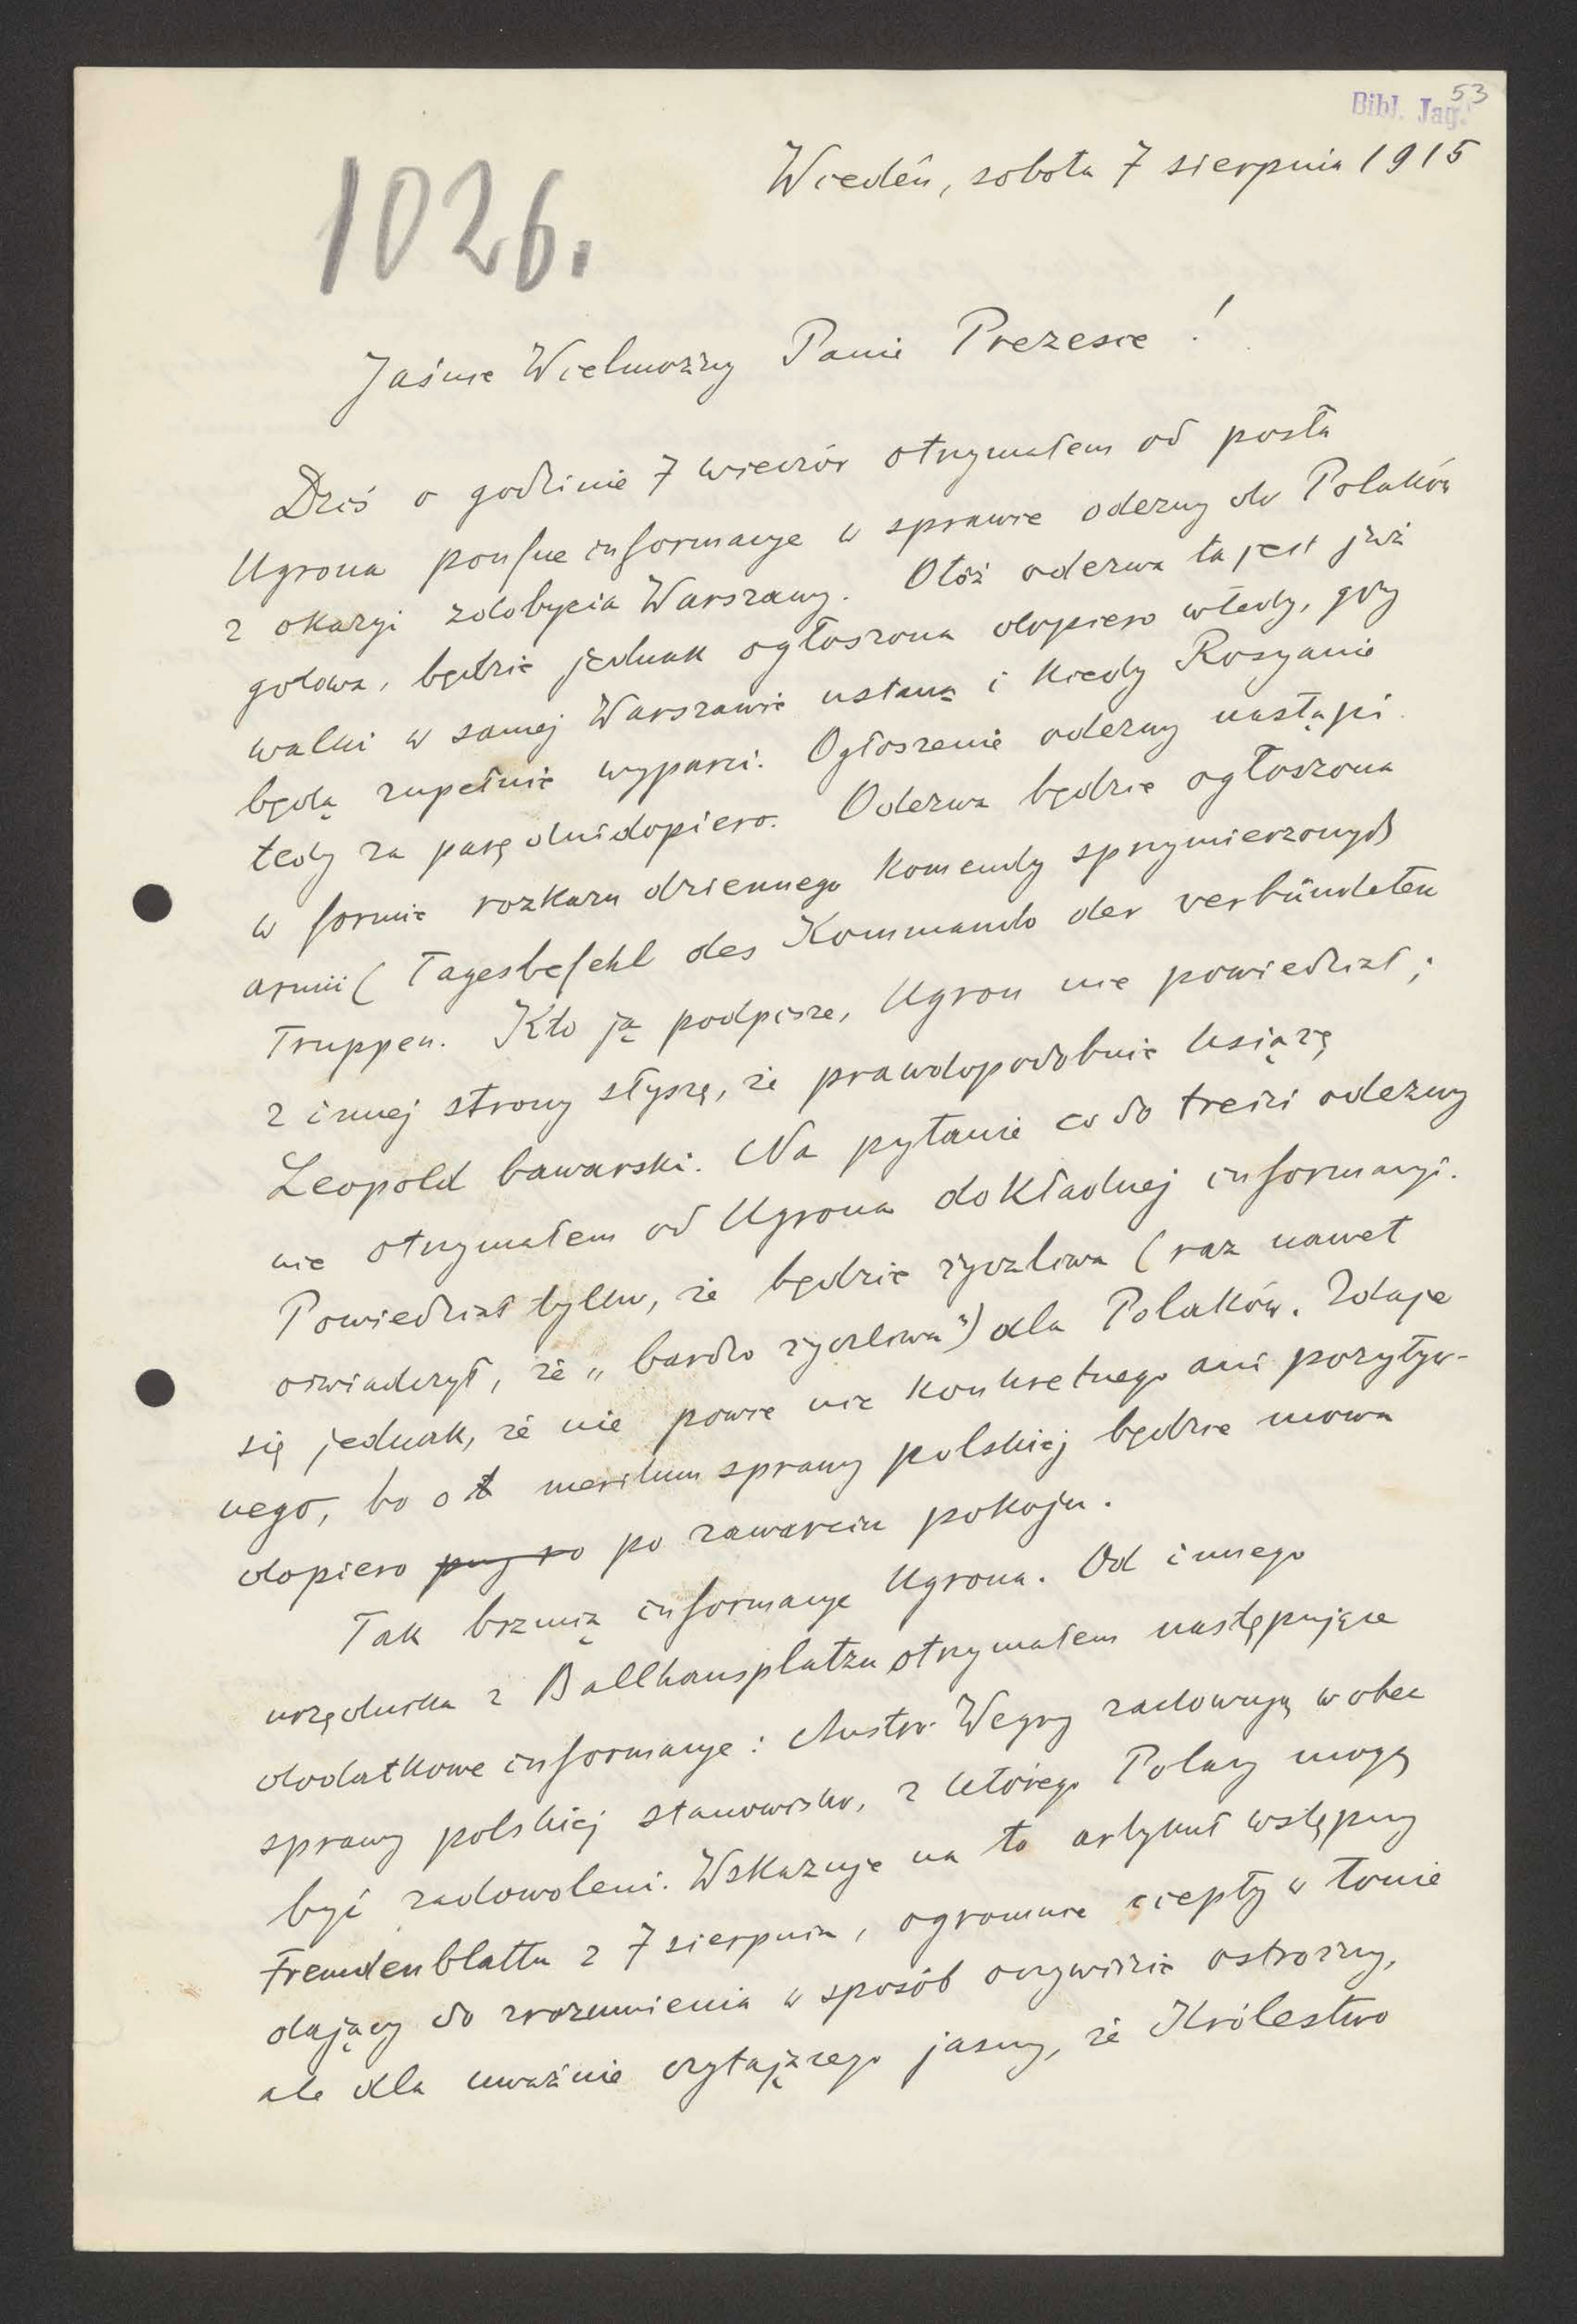 53
Bibl. Jag.
Wiedeń, sobota 7 sierpnia 1915
1026.
Jaśnie Wielmożny Panie Prezesie!
Dziś o godzinie 7 wieczór otrzymałem od posła
Ugrona poufne informacye w sprawie odezwy do Polaków
z okazyi zdobycia Warszawy. Otóż odezwa ta jest już
gotowa, będzie jednak ogłoszona dopiero wtedy, gdy
walki w samej Warszawie ustaną i kiedy Rosyanie
będą zupełnie wyparci. Ogłoszenie odezwy nastąpi
tedy za parę dni dopiero. Odezwa będzie ogłoszona
w formie rozkazu dziennego Komendy sprzymierzonych
armii ( Tagesbefehl des Kommando der verbündeten
Truppen. Kto ją podpisze, Ugron nie powiedział;
z innej strony słyszę, że prawdopodobnie książę
Leopold bawarski. Na pytanie co do treści odezwy
nie otrzymałem od Ugrona dokładnej informacyi.
Powiedział tylko, że będzie życzliwa (raz nawet
oświadczył, że „bardzo życzliwa") dla Polaków. Zdaje
się jednak, że nie powie nic konkretnego ani pozytyw-
nego, bo o meritum sprawy polskiej będzie mowa
dopiero po zawarciu pokoju.
Tak brzmią informacye Ugrona. Od innego
urzędnika z Ballhausplatzu otrzymałem następujące
dodatkowe informacye: Austro-Węgry zachowują wobec
sprawy polskiej stanowisko, z którego Polacy mogą
być zadowoleni. Wskazuje na to artykuł wstępny
Fremdenblattu z 7 sierpnia, ogromnie ciepły w tonie
dający do zrozumienia w sposób oczywiście ostrożny,
ale dla uważnie czytającego jasny, że Królestwo